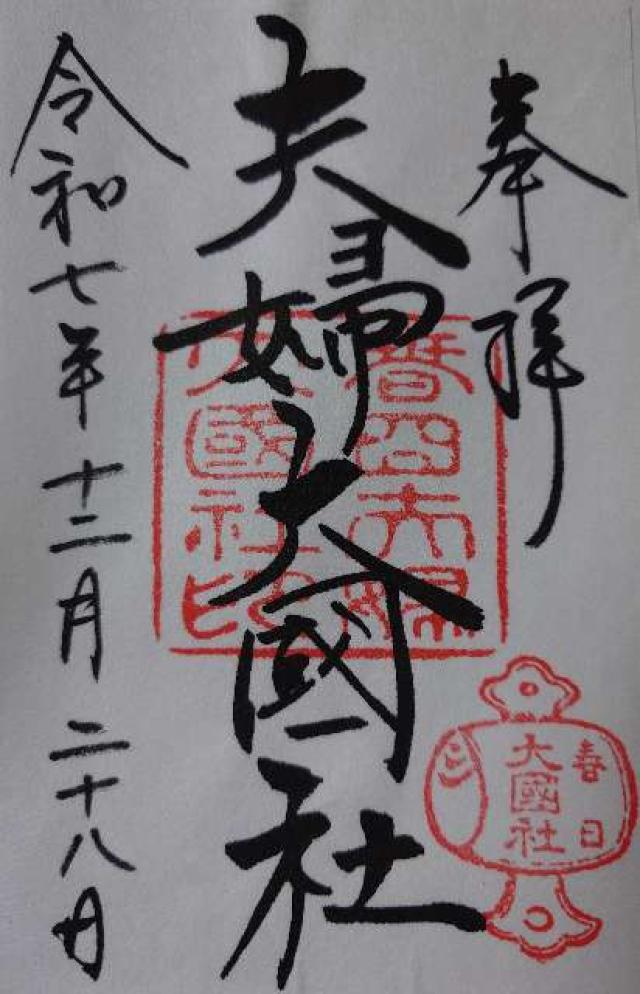 奉拝
夫婦大國社
春日夫婦
大國社印
春日
大國社
令和七年十二月二十八日